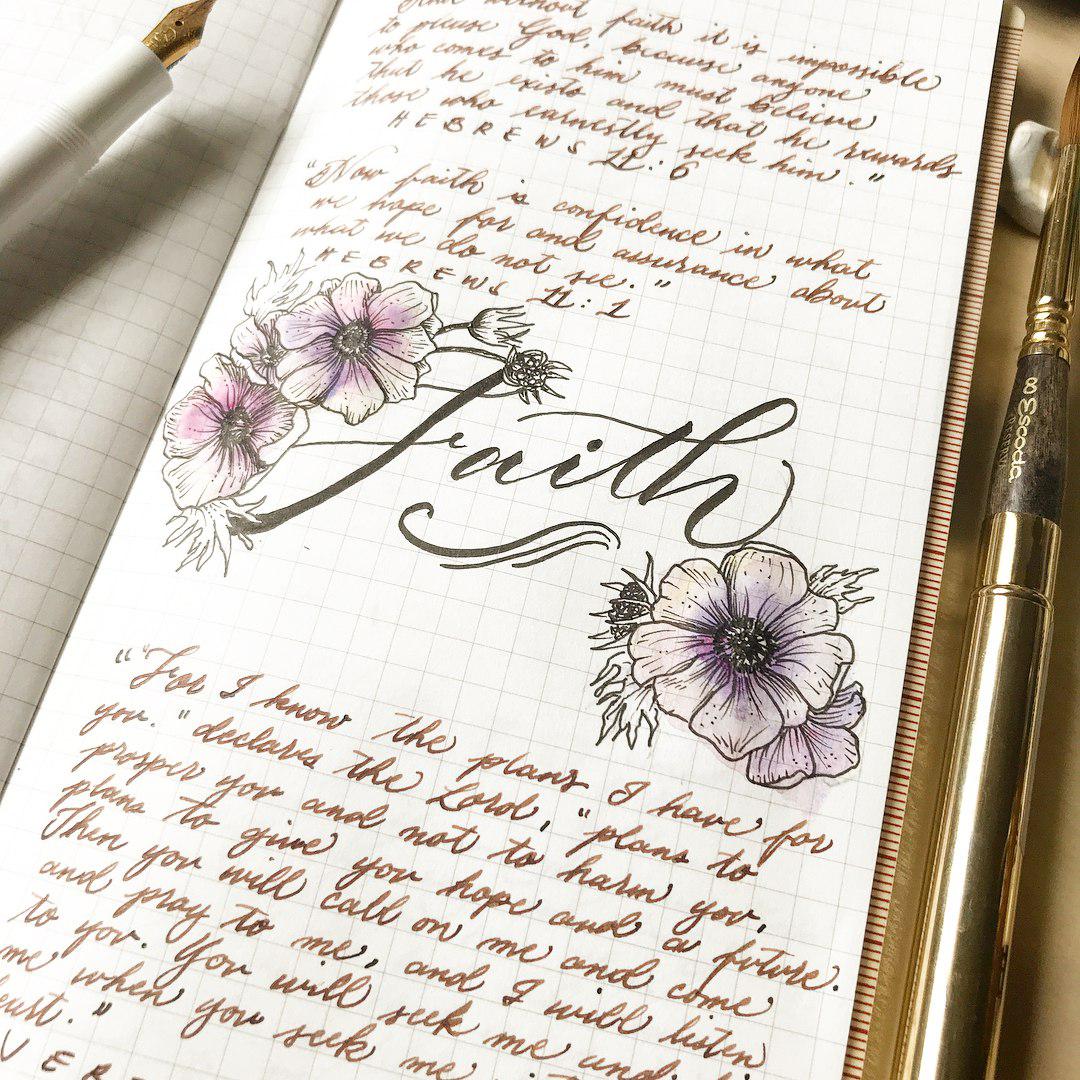 without faith it is impossible
to please God, because anyone
who comes to him must believe
that he exists and that he rewards
those who earnestly seek him."
HEBREWS 11:6
"Now faith is confidence in what
we hope for and assurance about
what we do not see."
HEBREWS 11:1
Faith
""For I know the plans I have for
you." declares the Lord, "plans to
prosper you and not to harm you,
plans to give you hope and a future.
Then you will call on me and come
and pray to me, and I will listen
to you. You will seek me and
me when you seek me
8 Escoda